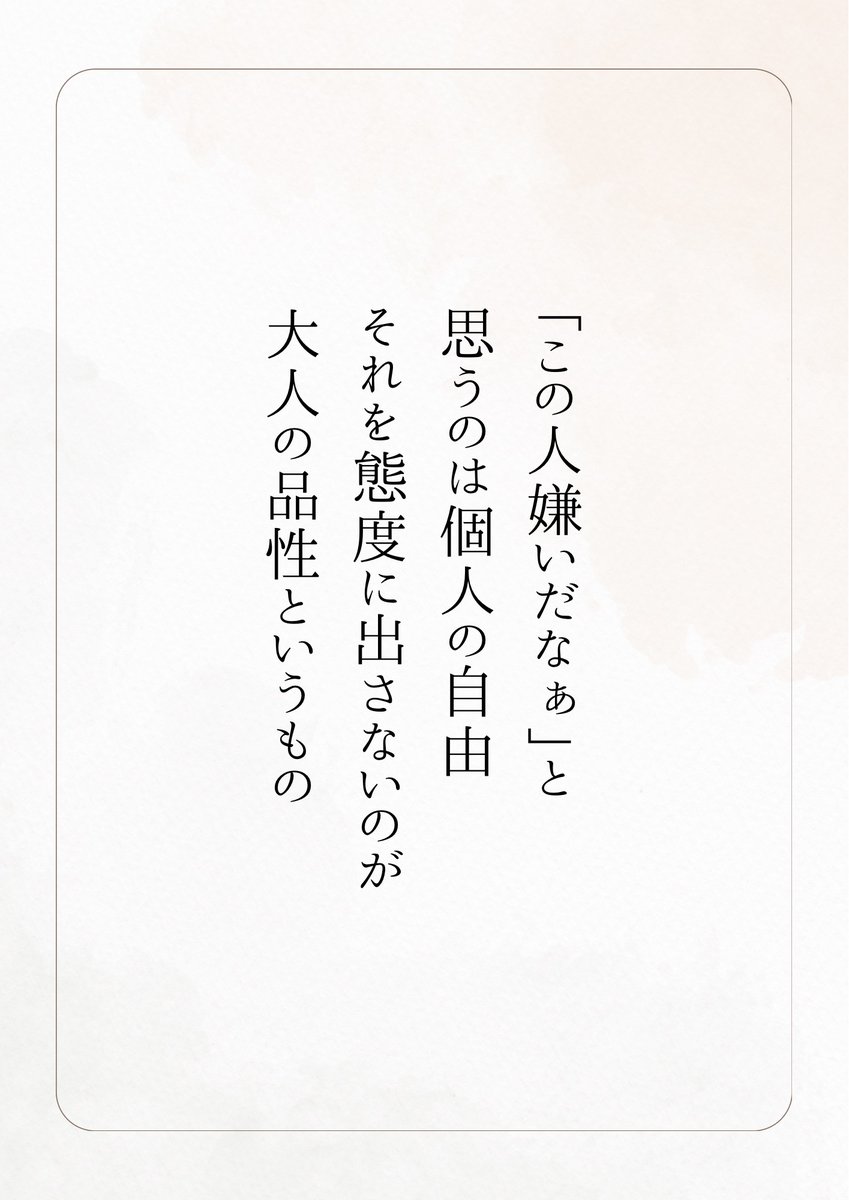 「この人嫌いだなぁ」と
思うのは個人の自由
それを態度に出さないのが
大人の品性というもの